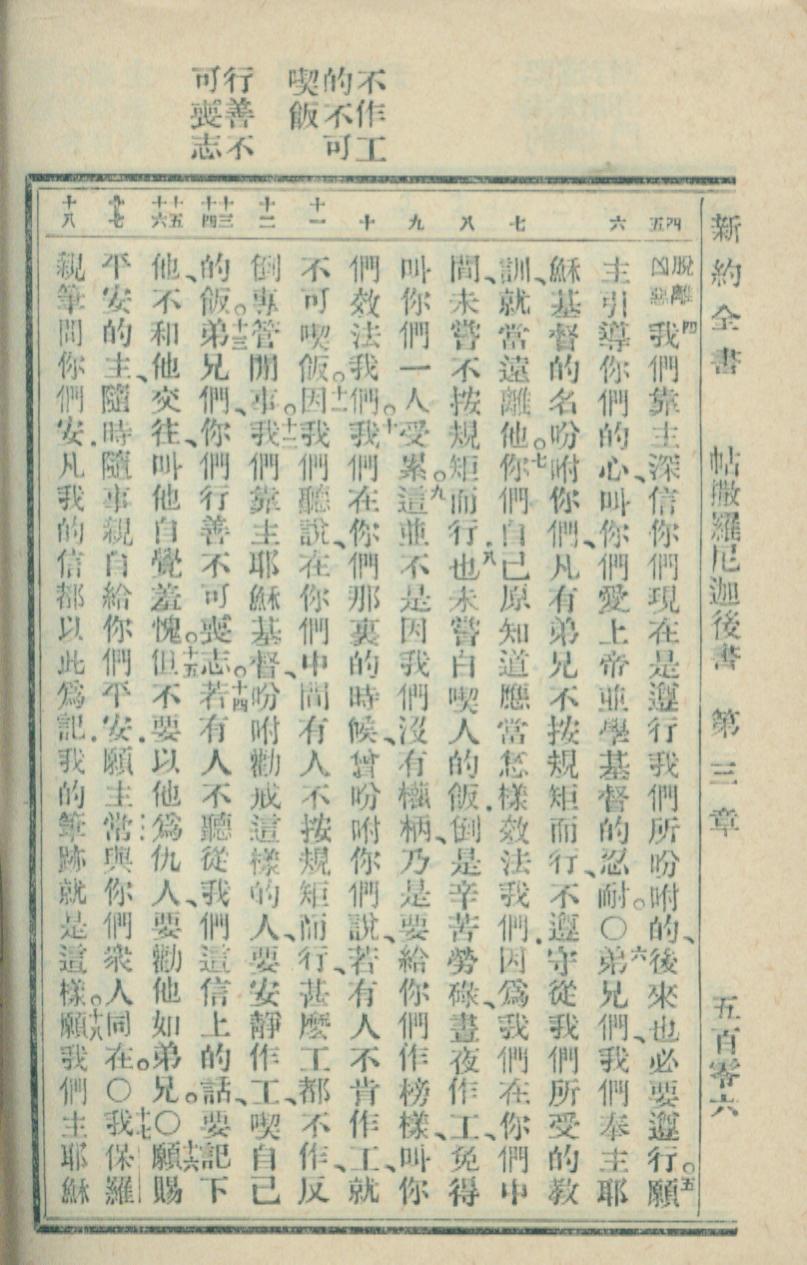 新約全書　帖撒羅尼迦後書　第三章　五百零六
不作工
的不可
喫飯
行善不
可喪志
四
五
六
七
八
九
十
十一
十二
十三
十四
十五
十六
十七
十八
脫離
凶惡四我們靠主深信你們現在是遵行我們所吩咐的、後來也必要遵行。五願
主引導你們的心、叫你們愛上帝並學基督的忍耐。○六弟兄們、我們奉主耶
穌基督的名吩咐你們、凡有弟兄不按規矩而行、不遵守從我們所受的敎
訓、就當遠離他。七你們自己原知道應當怎樣效法我們．因爲我們在你們中
間、未嘗不按規矩而行．八也未嘗白喫人的飯．倒是辛苦勞碌、晝夜作工、免得
叫你們一人受累。九這並不是因我們沒有權柄、乃是要給你們作榜樣、叫你
們效法我們。十我們在你們那裏的時候、曾吩咐你們說、若有人不肯作工、就
不可喫飯。十一因我們聽說、在你們中間有人不按規矩而行、甚麽工都不作、反
倒專管閒事。十二我們靠主耶穌基督、吩咐勸戒這樣的人、要安靜作工、喫自己
的飯。十三弟兄們、你們行善不可喪志。十四若有人不聽從我們這信上的話、要記下
他、不和他交往、叫他自覺羞愧。十五但不要以他爲仇人、要勸他如弟兄。○十六願賜
平安的主、隨時隨事親自給你們平安．願主常與你們衆人同在。○十七我保羅
親筆問你們安．凡我的信都以此爲記．我的筆跡就是這樣。十八願我們主耶穌